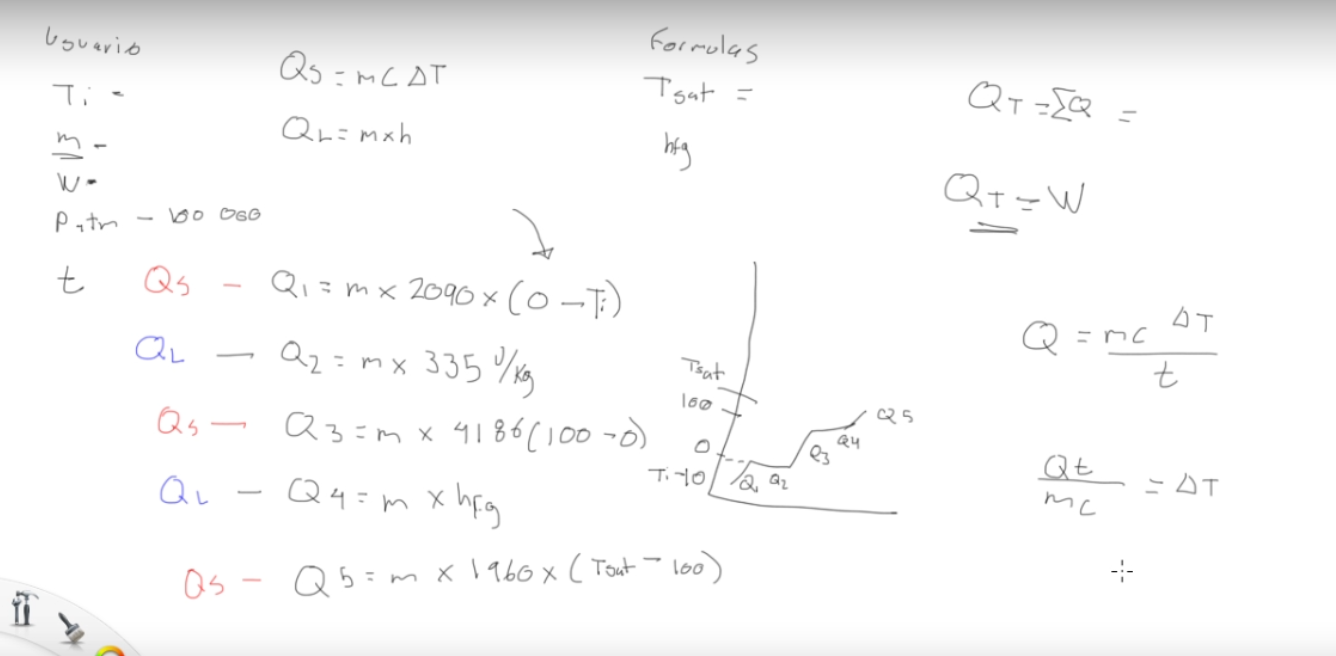 Usuario
Ti -
m -
W -
Patm - 100 000
t
Qs = mCΔT
QL = m×h
Formulas
Tsat =
hfg
QT = ΣQ =
QT = W
Qs - Q1 = m × 2090 × (0 - Ti)
QL - Q2 = m × 335 J/kg
Qs - Q3 = m × 4186(100 - 0)
QL - Q4 = m × hfg
Qs - Q5 = m × 1960 × (Tsat - 100)
Tsat
100
0
Ti -10
Q1 Q2
Q3 Q4
Q5
Q = mc ΔT / t
Qt / mc = ΔT